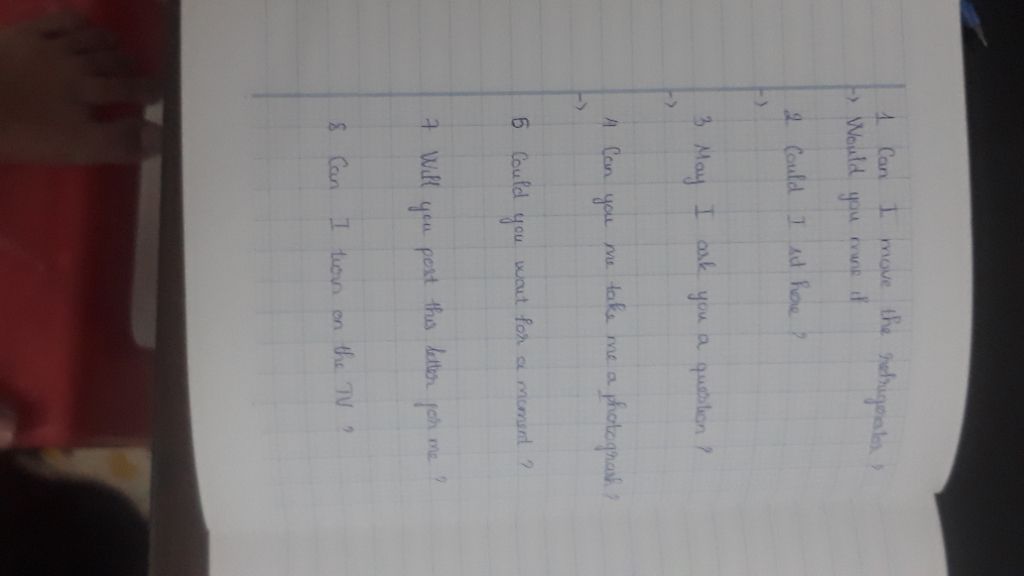 1 Can I move the refrigerator ?
-> Would you mine if
2 Could I sit here ?
->
3 May I ask you a question ?
->
4 Can you me take me a photograph ?
->
5 Could you wait for a moment ?
7 Will you post this letter for me ?
8 Can I turn on the TV ?